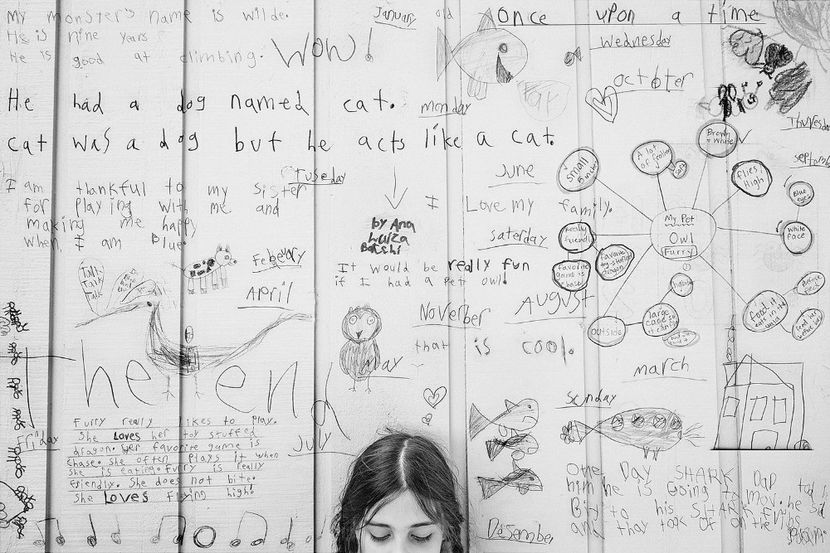 My monster's name is wilde.
He is nine years old
He is good at climbing.
WOW!
January
Once upon a time
Wednesday
October
He had a dog named cat.
monday
cat was a dog but he acts like a cat.
Thursday
Tuseday
I am thankful to my Sister
for playing with me and
making me happy
when I am Blue.
June
I Love my family.
by Ana
Luiza
saterday
It would be really fun
if I had a pet owl!
Feberary
April
Talk
Talk
Talk
November
August
that is cool.
May
march
Brown
+ White
A lot
small
flies
High
Blue
eyes
White
face
My Pet
Owl
Furry
Really
friendly
favorite
game is
chase
outside
large
cage
food
the end
Friday
July
Sunday
Furry really likes to play.
She Loves her toy stuffed
dragon. Her favorite game is
chase. She often plays it when
she is eating. Furry is really
friendly. She does not bite.
She Loves flying high!
One Day SHARK Dad told
him he is Going to mov. he sd
By to his SHARK frids
and thay took of on the
Desember